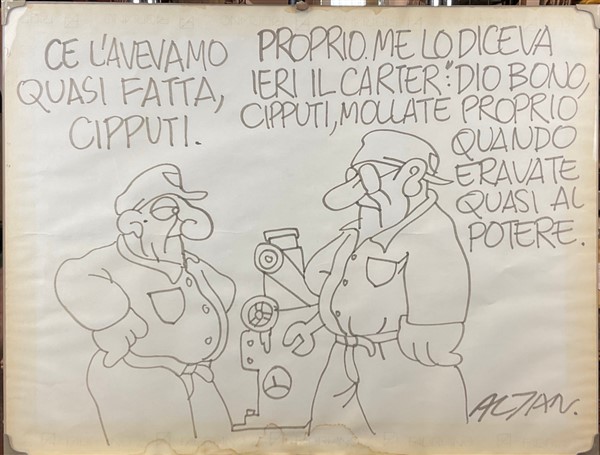 CE L'AVEVAMO
QUASI FATTA,
CIPPUTI.
PROPRIO. ME LO DICEVA
IERI IL CARTER: "DIO BONO,
CIPPUTI, MOLLATE PROPRIO
QUANDO
ERAVATE
QUASI AL
POTERE.
ALTAN.